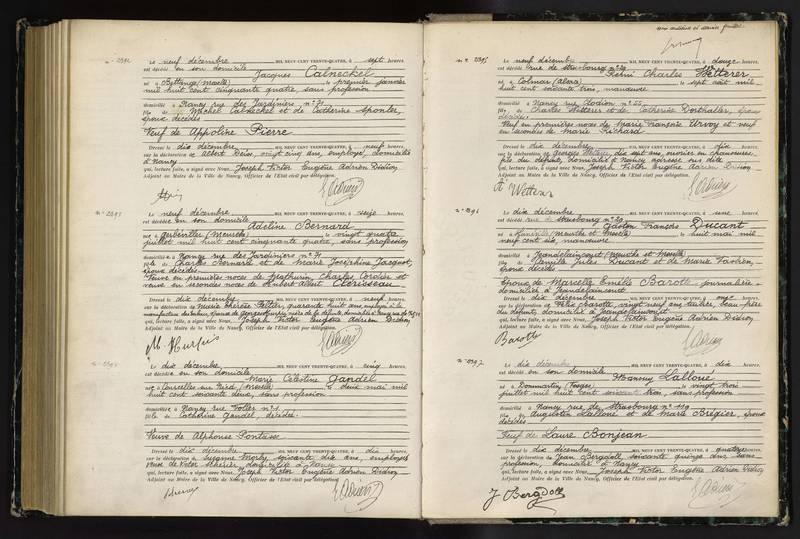 N° 2392
Le neuf décembre MIL NEUF CENT TRENTE-QUATRE, à sept heures,
est décédé en son domicile Jacques Calneckel
né à Bettange (Moselle) le premier janvier
mil huit cent cinquante quatre, sans profession
domicilié à Nancy rue des Jardiniers n° 71
fils de Michel Calneckel et de Catherine Sponler,
époux décédés
Veuf de Appoline Pierre
Dressé le dix décembre MIL NEUF CENT TRENTE-QUATRE, à neuf heures,
sur la déclaration de Albert vingt cinq ans, employé, domicilié
à Nancy
qui, lecture faite, a signé avec Nous, Joseph Victor Eugène Adrien Didion
Adjoint au Maire de la Ville de Nancy, Officier de l'État civil par délégation.
N° 2393
Le neuf décembre MIL NEUF CENT TRENTE-QUATRE, à seize heures,
est décédée en son domicile Adeline Bernard
née à (Meurthe) le vingt quatre
juillet mil huit cent cinquante quatre, sans profession
domiciliée à Nancy rue des Jardiniers n° 71
fille de Charles Bernard et de Marie Joséphine Jacquot,
époux décédés
Veuve en premières noces de Mathurin, Charles Cordier et
veuve en secondes noces de Hubert Albert Clérisseau
Dressé le dix décembre MIL NEUF CENT TRENTE-QUATRE, à neuf heures,
sur la déclaration de Marie Thérèse Peltier, quarante huit ans, employée à la
manufacture des tabacs, épouse de Georges nièce de la défunte, domiciliée à Nancy rue de
qui, lecture faite, a signé avec Nous, Joseph Victor Eugène Adrien Didion
Adjoint au Maire de la Ville de Nancy, Officier de l'État civil par délégation.
N° 2394
Le dix décembre MIL NEUF CENT TRENTE-QUATRE, à cinq heures,
est décédée en son domicile Marie Célestine Gandel
née à Courcelles sur Nied (Moselle) le deux mai mil
huit cent soixante deux, sans profession
domiciliée à Nancy rue n° 1
fille de Catherine Gandel, décédée
Veuve de Alphonse Pontasse
Dressé le dix décembre MIL NEUF CENT TRENTE-QUATRE, à dix heures,
sur la déclaration de Suzanne soixante dix ans, employée
veuve de Victor domiciliée à Nancy
qui, lecture faite, a signé avec Nous, Joseph Victor Eugène Adrien Didion
Adjoint au Maire de la Ville de Nancy, Officier de l'État civil par délégation.
N° 2395
Le neuf décembre MIL NEUF CENT TRENTE-QUATRE, à douze heures,
est décédé rue de Strasbourg n° 29 Rémi Charles Wetterer
né à Colmar (Alsace) le sept août mil
huit cent soixante trois, manœuvre
domicilié à Nancy rue Clodion n° 55
fils de Charles Wetterer et de Catherine Dorthaller, époux
décédés
Veuf en premières noces de Marie Françoise Urvoy et veuf
en secondes de Marie Richard
Dressé le dix décembre MIL NEUF CENT TRENTE-QUATRE, à dix heures,
sur la déclaration de Georges Wetterer, dix sept ans, ouvrier en chaussures,
fils du défunt, domicilié à Nancy adresse sus dite
qui, lecture faite, a signé avec Nous, Joseph Victor Eugène Adrien Didion
Adjoint au Maire de la Ville de Nancy, Officier de l'État civil par délégation.
N° 2396
Le dix décembre MIL NEUF CENT TRENTE-QUATRE, à une heure,
est décédé rue de Strasbourg n° 29 Gaston François Ducant
né à (Meurthe et Moselle) le huit mai mil
neuf cent six, manœuvre
domicilié à Jeandelaincourt (Meurthe et Moselle)
fils de Camille Jules Ducant et de Marie
époux décédés
Époux de Marcelle Emilie Barotte journalière
domiciliée à Jeandelaincourt
Dressé le dix décembre MIL NEUF CENT TRENTE-QUATRE, à onze heures,
sur la déclaration de Barotte, vingt neuf ans, beau-frère
du défunt, domicilié à Jeandelaincourt
qui, lecture faite, a signé avec Nous, Joseph Victor Eugène Adrien Didion
Adjoint au Maire de la Ville de Nancy, Officier de l'État civil par délégation.
Barotte
N° 2397
Le dix décembre MIL NEUF CENT TRENTE-QUATRE, à dix heures,
est décédé en son domicile Lalloue
né à Dommartin (Vosges) le vingt trois
juillet mil huit cent soixante trois, sans profession
domicilié à Nancy rue de Strasbourg n° 119
fils de Augustin Lalloue et de Marie Brégier, époux
décédés
Veuf de Laure Bonjean
Dressé le dix décembre MIL NEUF CENT TRENTE-QUATRE, à quatorze heures,
sur la déclaration de Jean Bergdoll, soixante quinze ans sans
profession, domicilié à Nancy
qui, lecture faite, a signé avec Nous, Joseph Victor Eugène Adrien Didion
Adjoint au Maire de la Ville de Nancy, Officier de l'État civil par délégation.
J Bergdoll